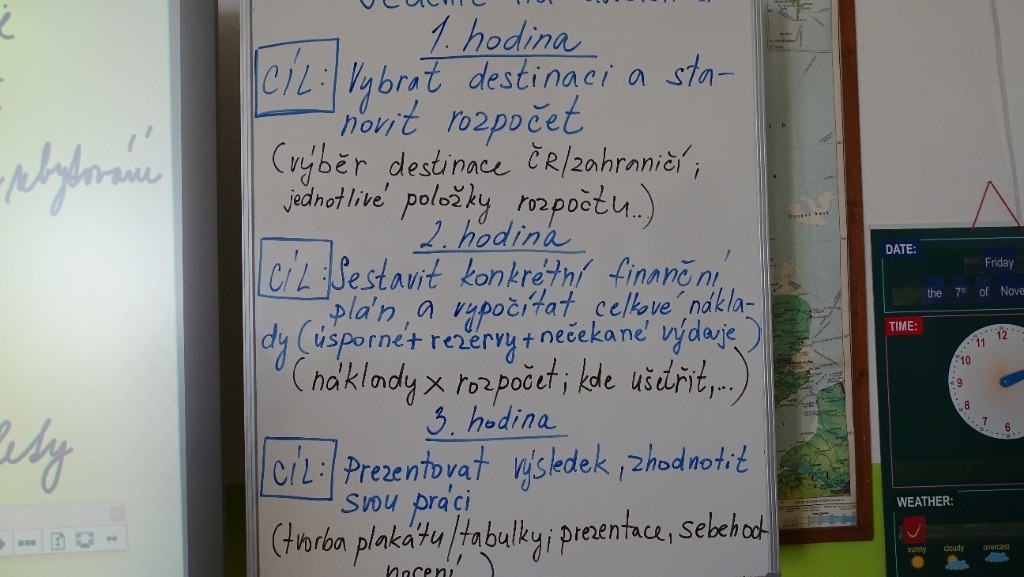 1. hodina
CÍL: Vybrat destinaci a sta-
novit rozpočet
(výběr destinace ČR/zahraničí;
jednotlivé položky rozpočtu..)
2. hodina
CÍL: Sestavit konkrétní finanční
plán a vypočítat celkové nákla-
dy (úsporné + rezervy + nečekané výdaje)
(náklady x rozpočet; kde ušetřit,...)
3. hodina
CÍL: Prezentovat výsledek, zhodnotit
svou práci
(tvorba plakátu/tabulky; prezentace, sebehod-
nocení)
ubytování
DATE:
Friday
the 7th of Nove
TIME:
12
11
10
9
8
7
6
WEATHER:
sunny
cloudy
overcast